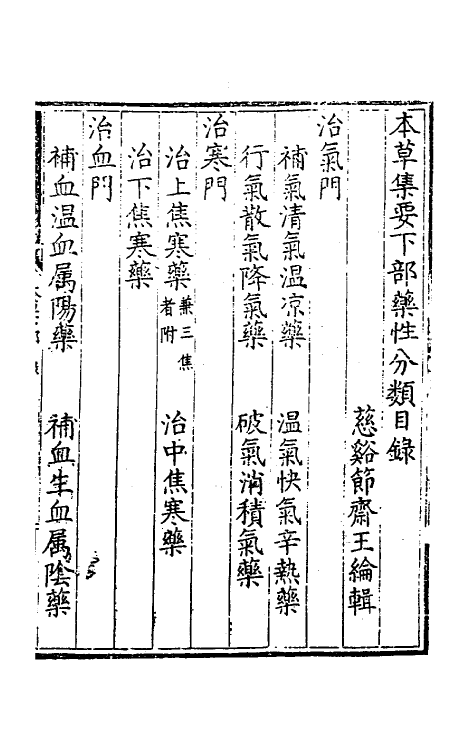 本草集要下部藥性分類目錄
慈谿節齋王綸輯
治氣門
補氣清氣温凉藥　温氣快氣辛熱藥
行氣散氣降氣藥　破氣消積氣藥
治寒門
治上焦寒藥兼三焦者附　治中焦寒藥
治下焦寒藥
治血門
補血温血属陽藥　補血生血属陰藥